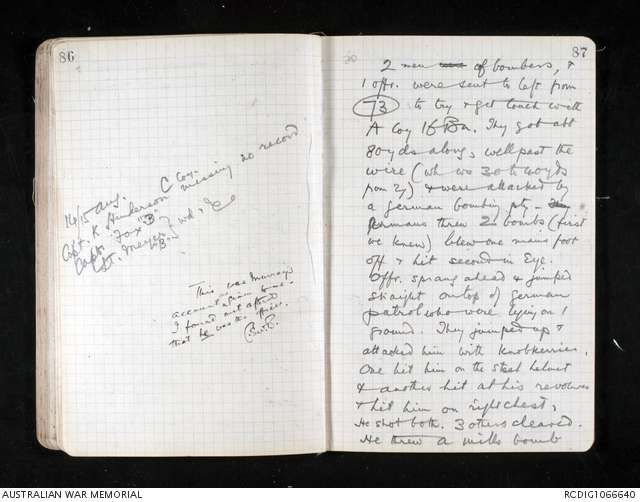 86
14/15 Aug.
Capt. K Henderson C Coy. missing no record
Capt. Fox "B"
Lt. Meyer "B" wd &
This was Murray's
account given to me.
I found out after
that he was the officer.
C.E.W.B.
87
2 men of bombers, &
1 offr. were sent to left from
73 to try & get touch with
A Coy 16 Bn. They got abt
80 yds along, well past the
wire (wh ws 30 to 40 yds
from 27) & were attacked by
a German bombing pty -
Germans threw 2 bombs (first
we knew) blew one mans foot
off & hit second in Eye.
Offr. sprang ahead & jumped
straight on top of German
patrol who were lying on
ground. They jumped up &
attacked him with knobkerries.
One hit him on the steel helmet
& another hit at his revolver
& hit him on right chest,
He shot both. 3 others cleared.
He threw a mills bomb
AUSTRALIAN WAR MEMORIAL
RCDIG1066640